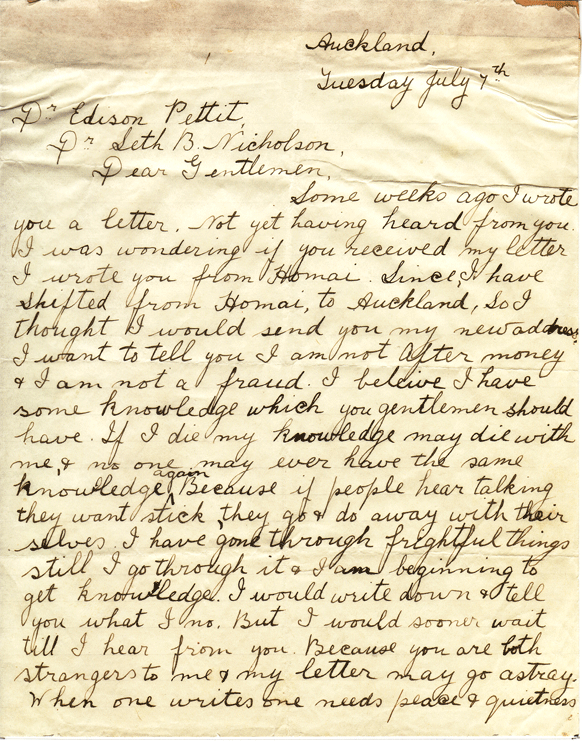 Auckland,
Tuesday July 7th
Dr Edison Pettit,
Dr Seth B. Nicholson,
Dear Gentlemen,
Some weeks ago I wrote
you a letter. Not yet having heard from you.
I was wondering if you received my letter
I wrote you from Homai. Since, I have
shifted from Homai, to Auckland, So I
thought I would send you my new address,
I want to tell you I am not after money
& I am not a fraud. I beleive I have
some knowledge which you gentlemen should
have. If I die my knowledge may die with
me, & no one may ever have the same
knowledge again, Because if people hear talking
they want stick, they go & do away with their
selves. I have gone through frightful things
still I go through it & I am beginning to
get knowledge. I would write down & tell
you what I no. But I would sooner wait
till I hear from you. Because you are both
strangers to me & my letter may go astray.
When one writes one needs peace & quietness